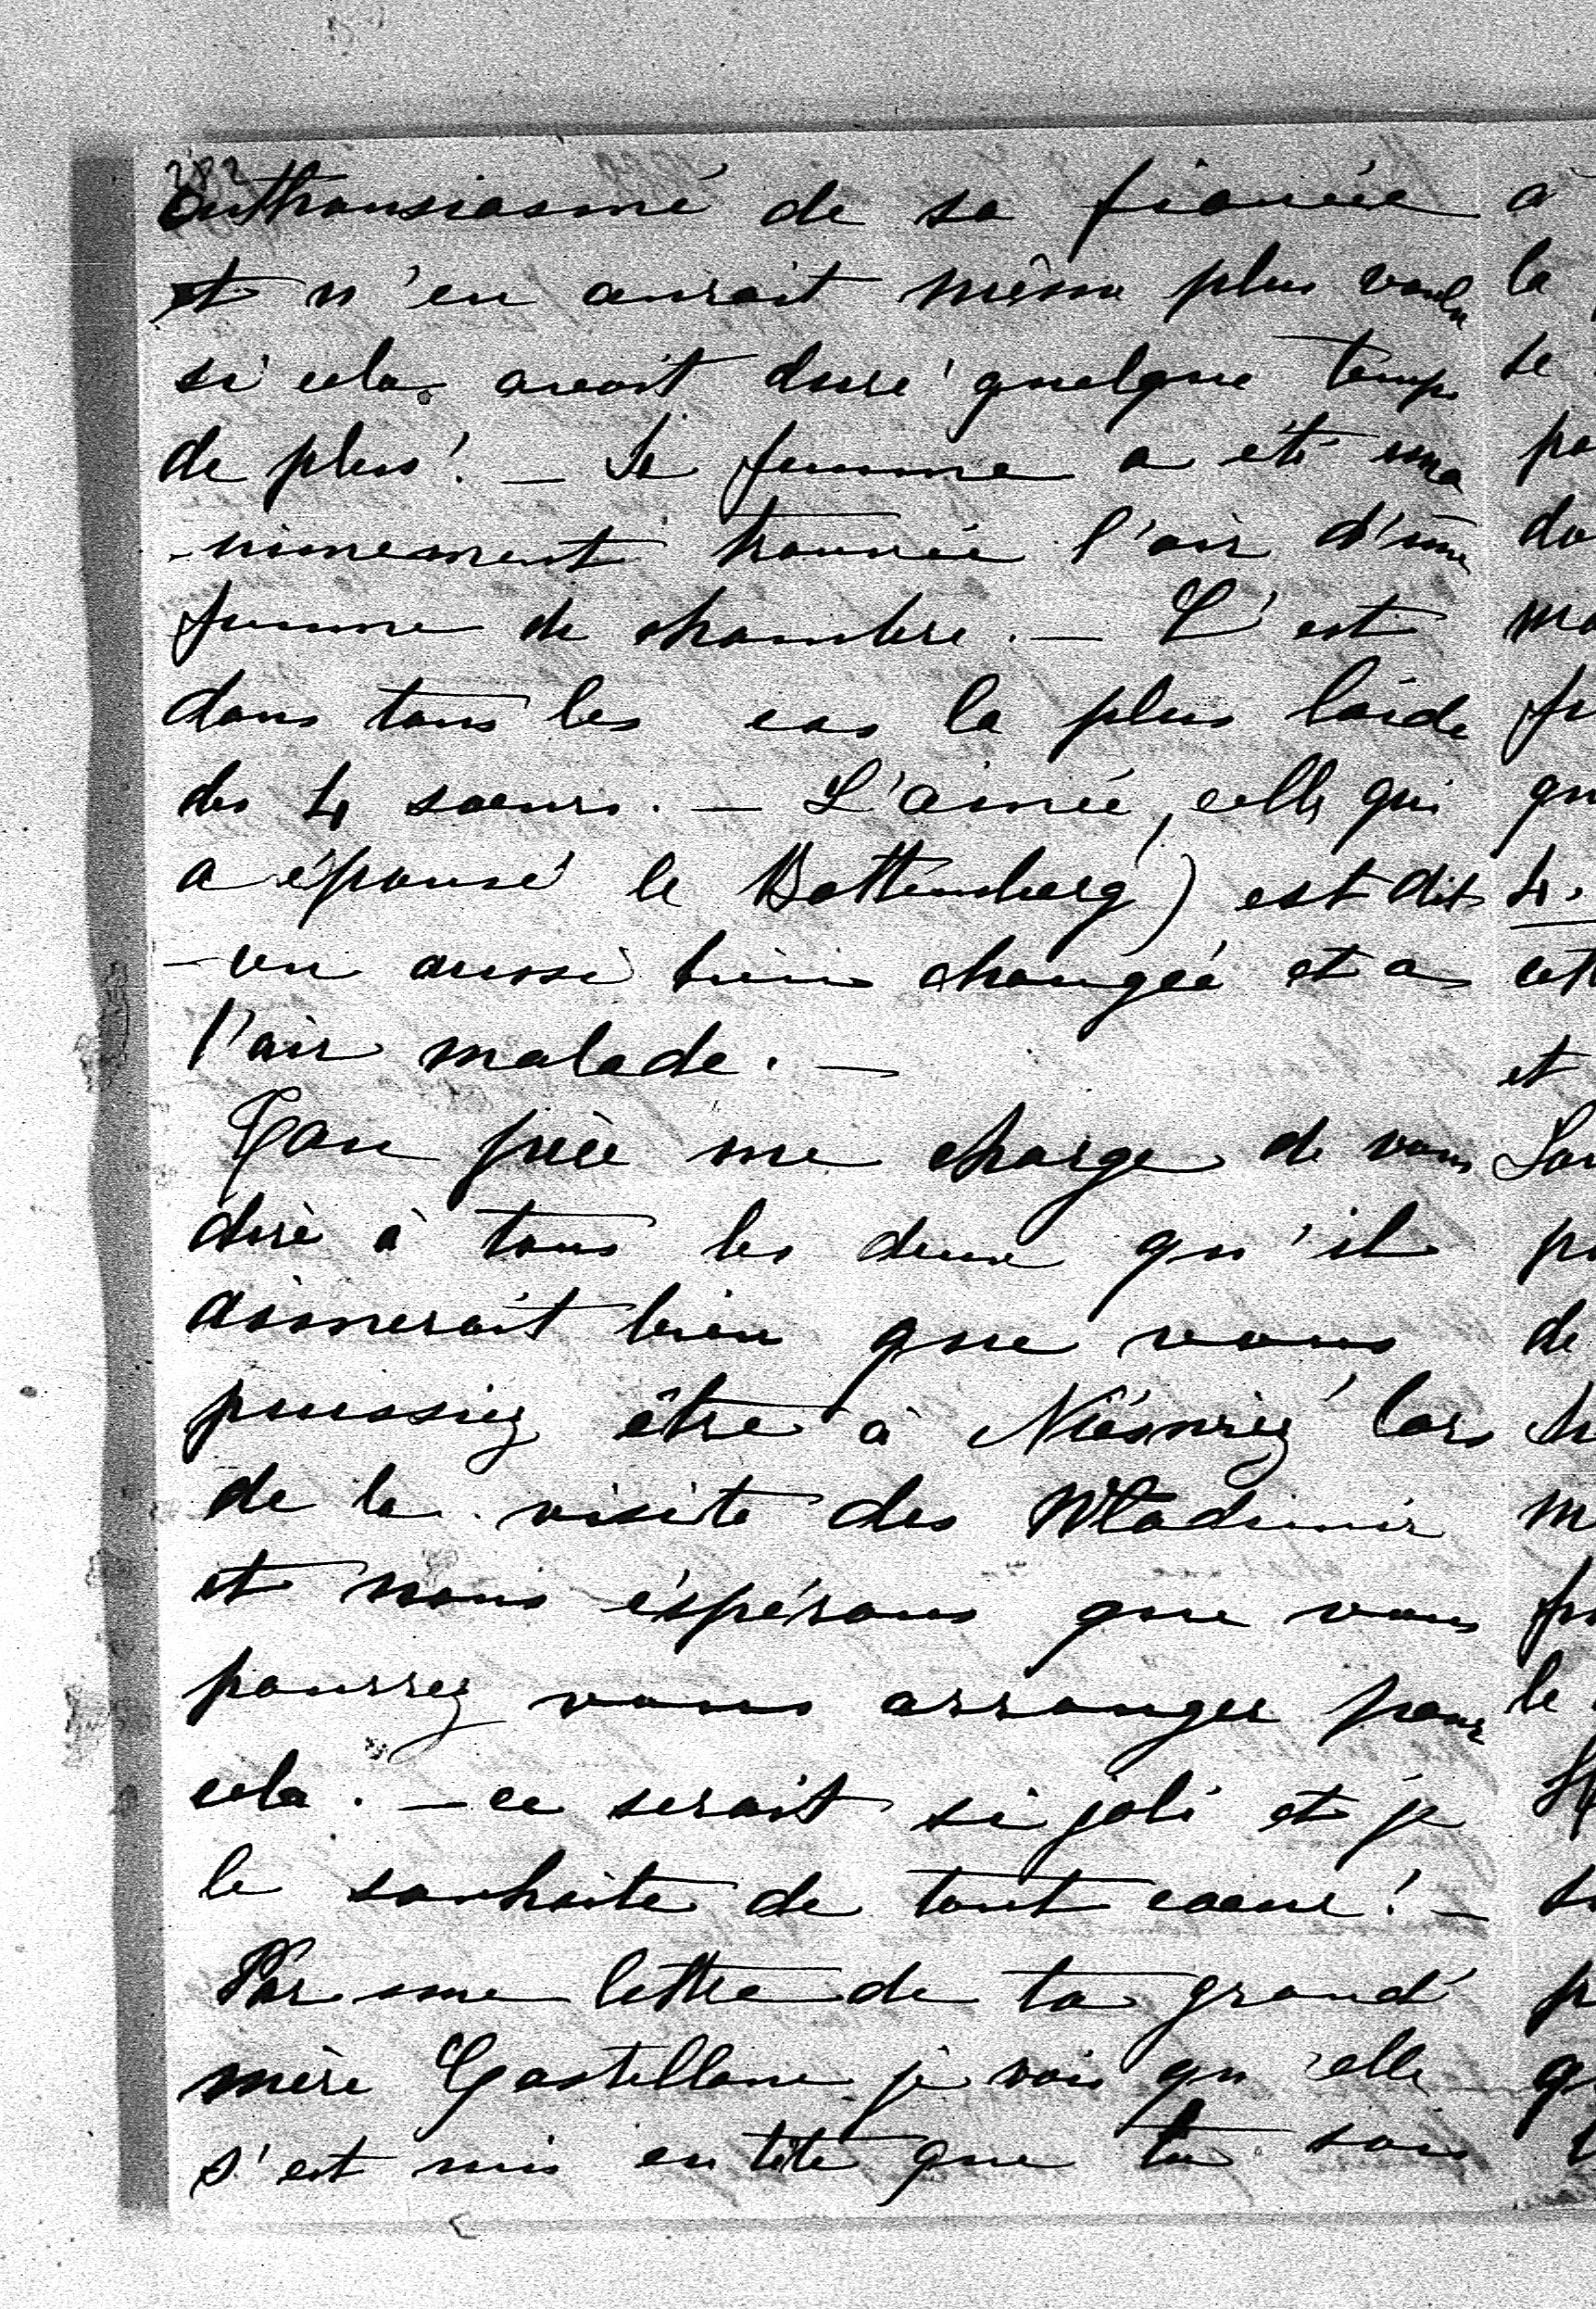 282
enthousiasmé de sa fiancée
et n'en aurait même plus voulu
si cela avait duré quelque temps
de plus! – Sa femme a été una
-nimement trouvée l'air d'une
femme de chambre. – C'est
dans tous les cas la plus laide
des 4 soeurs. – L'ainée, celle qui
a épousé le Battenberg) est dit
-on aussi bien changée et a
l'air malade. –
Ton père me charge de vous
dire à tous les deux qu'il
aimerait bien que vous
puissiez être à Niéswiez lors
de la visite des Wladimir
et nous éspérons que vous
pourrez vous arranger pour
cela. – ce serait si joli et je
le souhaite de tout coeur! –
Par une lettre de ta grand'
mère Castellane je vois qu'elle
s'est mis en tête que tu sois
à
la
se
po
do
ma
fu
qu
4.
cett
et
pr
de
m
le